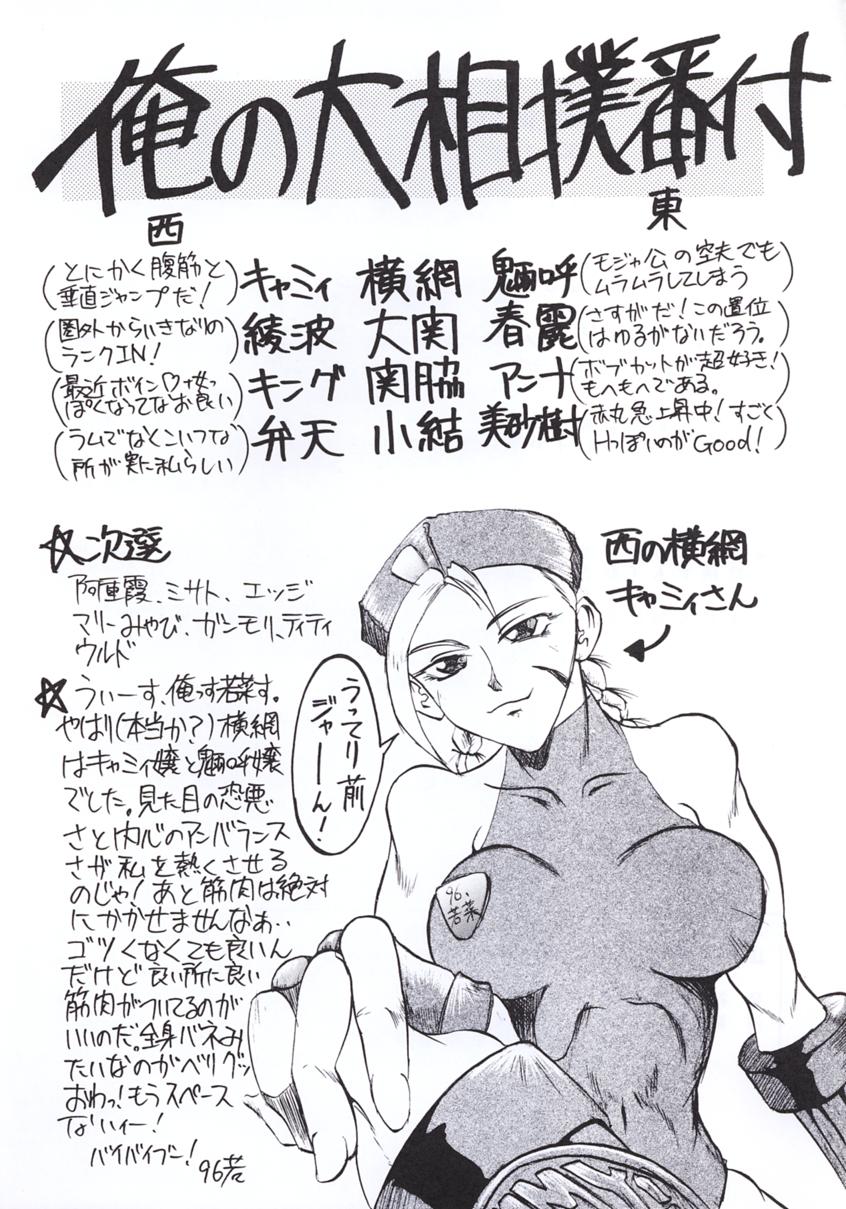 俺の大相撲番付
西
東
(とにかく腹筋と
垂直ジャンプだ!)
キャミィ 横網 魎呼
(モジャ公の空夫でも
ムラムラしてしまう)
(圏外からいきなりの
ランクIN!)
綾波 大関 春麗
(さすがだ!この置位
はゆるがないだろう。)
(最近ボイン♡女っ
ぽくなってなお良い)
キング 関脇 アンナ
(ボブカットが超好き!
もへもへである。)
(ラムでなくこいつな
所が実に私らしい)
弁天 小結 美砂樹
(赤丸急上昇中!すごく
HっぽいのがGood!)
☆次選
阿重霞、ミサト、エッジ
マリー、みやび、ガンモリ、ティティ
ウルド
西の横網
キャミィさん
うってり前
ジャーーん!
☆うぃーす、俺っす若菜す。
やはり(本当か?)横網
はキャミィ嬢と魎呼嬢
でした。見た目の恐悪
さと内心のアンバランス
さが私を熱くさせる
のじゃ!あと筋肉は絶対
にかかせませんなぁ‥
ゴツくなくても良いん
だけど良い所に良い
筋肉がついてるのが
いいのだ。全身バネみ
たいなのがベリグッ
おわっ!もうスペース
ないィー!
バイバイブー!
96若
96、
若菜